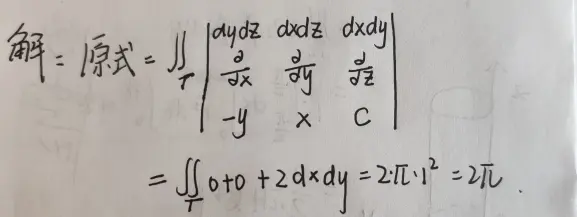 解: 原式 = ∬_T | dydz dxdz dxdy |
| ∂/∂x ∂/∂y ∂/∂z |
| -y x C |
= ∬_T 0+0+2dxdy = 2·π·1² = 2π.